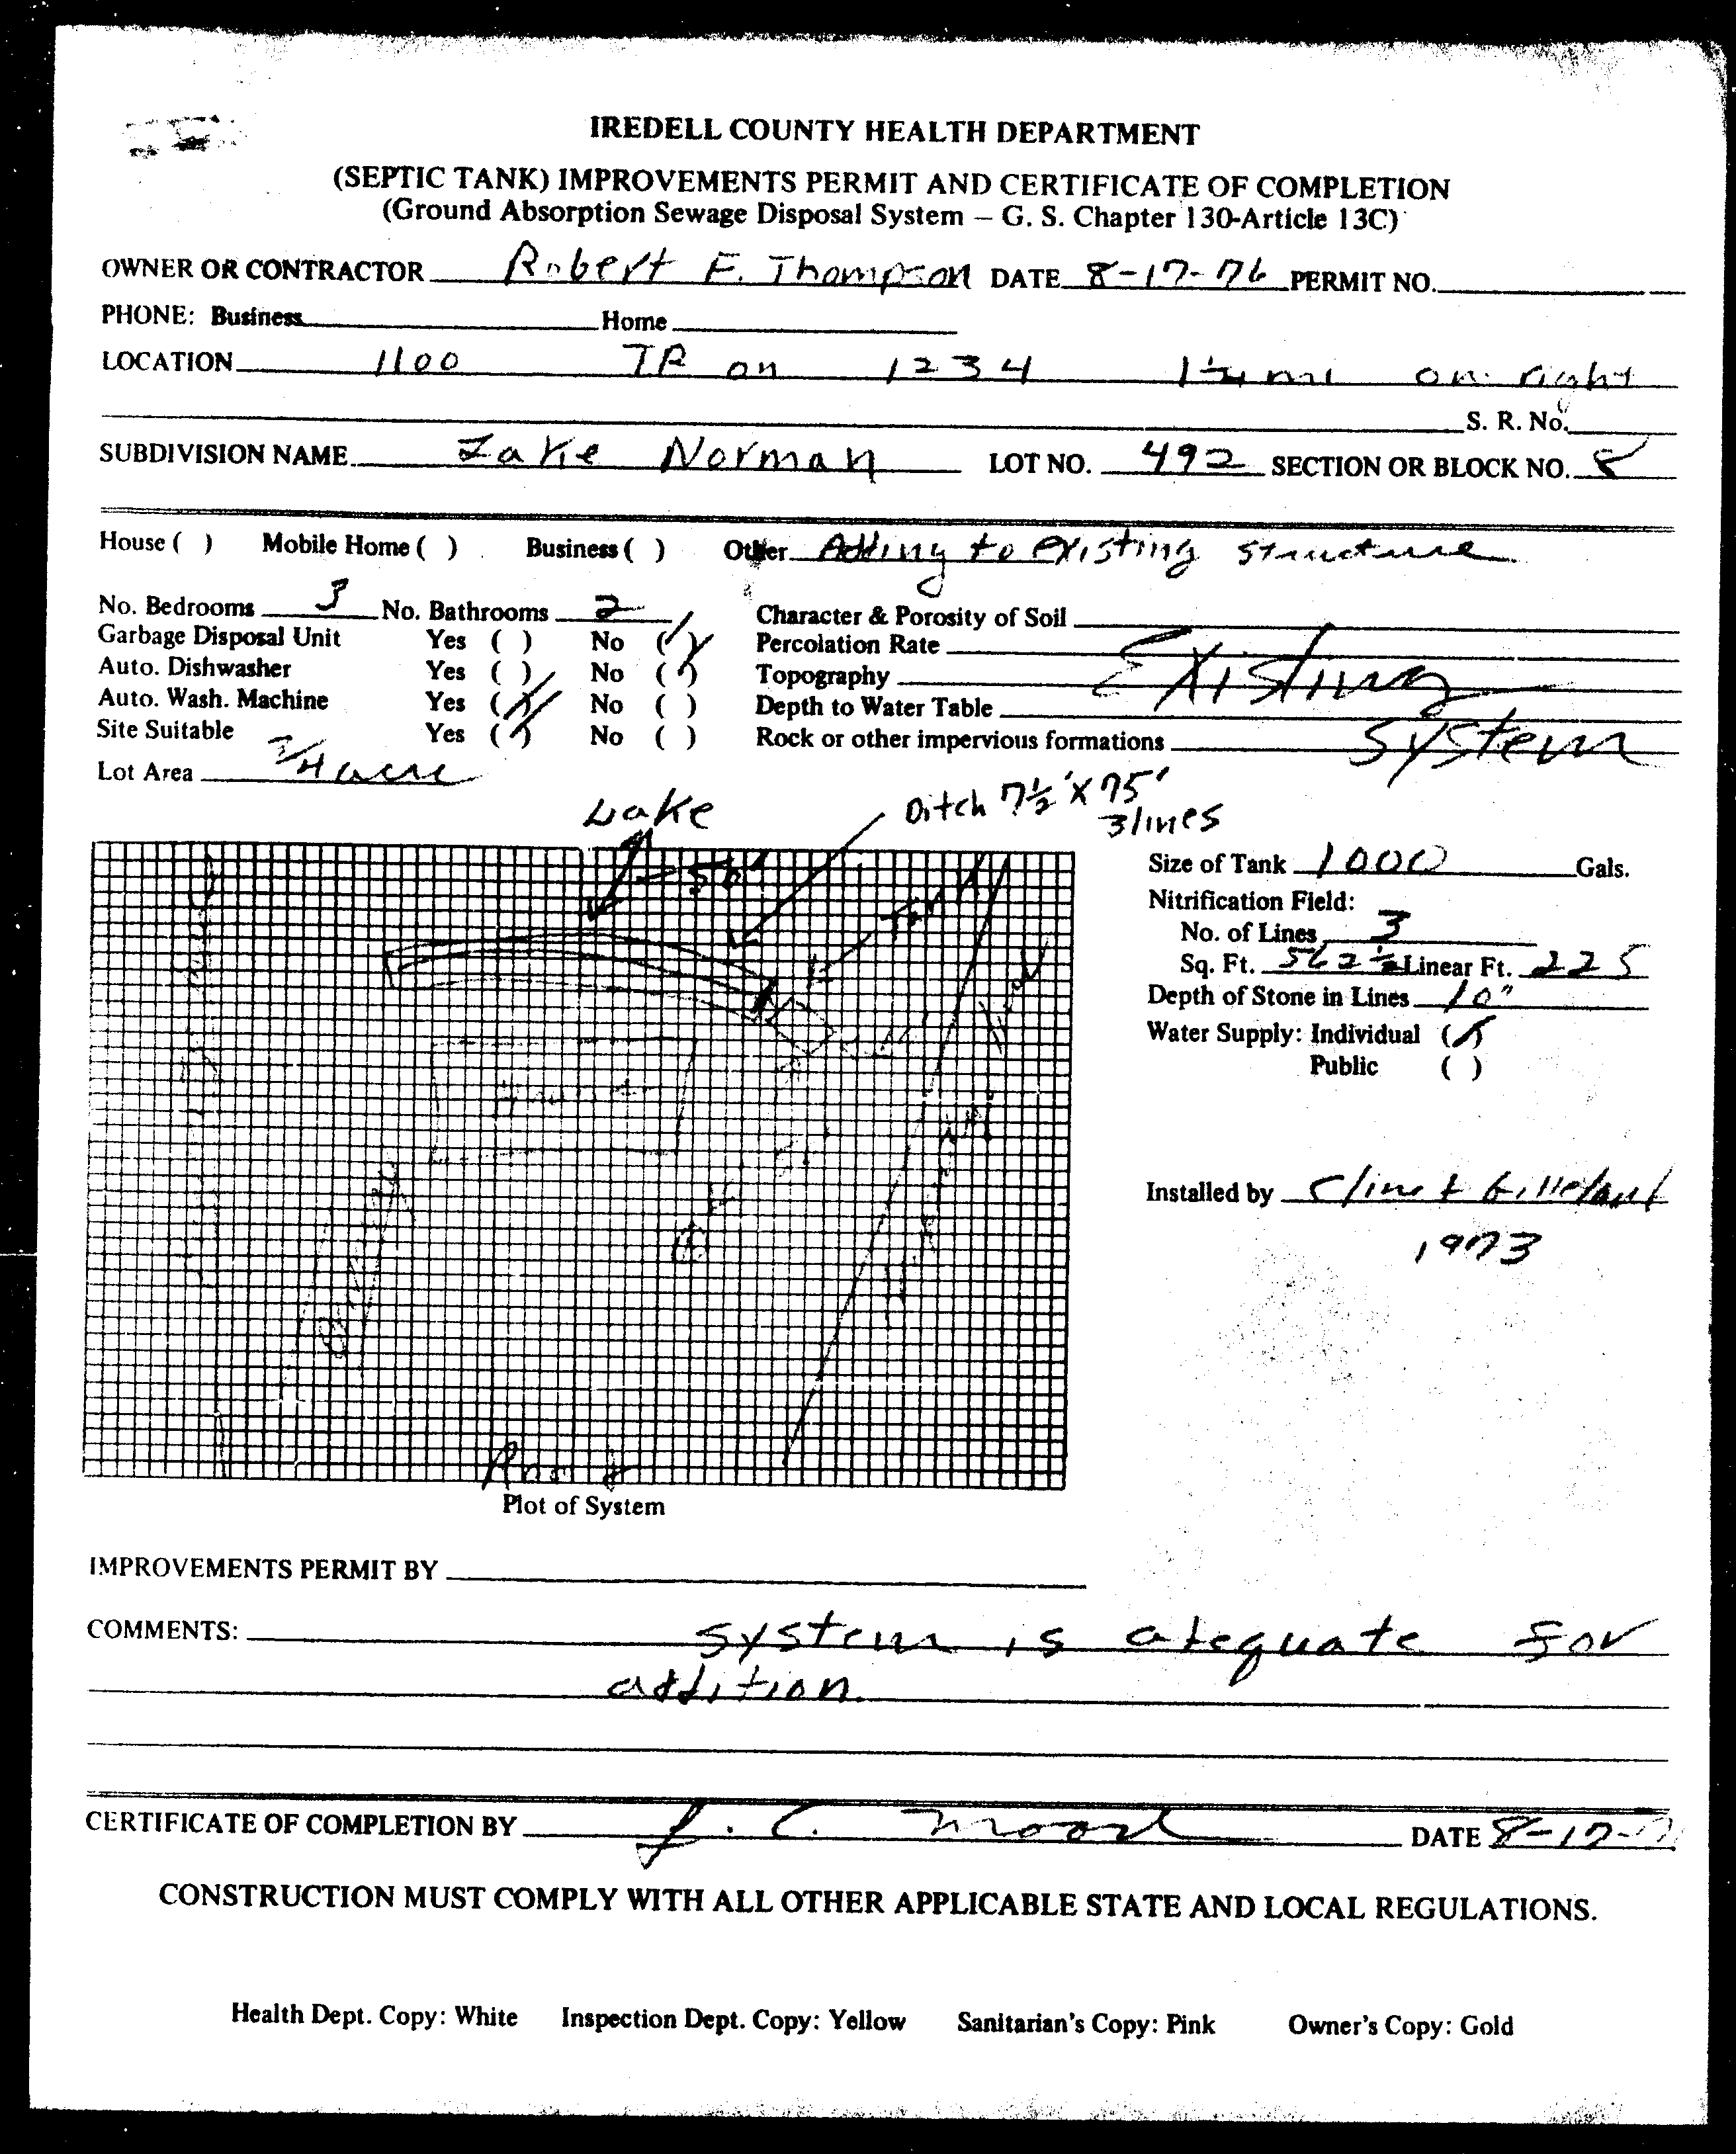 IREDELL COUNTY HEALTH DEPARTMENT
(SEPTIC TANK) IMPROVEMENTS PERMIT AND CERTIFICATE OF COMPLETION
(Ground Absorption Sewage Disposal System — G. S. Chapter 130-Article 13C)
OWNER OR CONTRACTOR Robert F. Thompson DATE 8-17-76 PERMIT NO.
PHONE: Business Home
LOCATION 1100 TR on 1234 1 1/4 mi on right
S. R. No.
SUBDIVISION NAME Lake Norman LOT NO. 492 SECTION OR BLOCK NO. 8
House ( ) Mobile Home ( ) Business ( ) Other Adding to existing structure
No. Bedrooms 3 No. Bathrooms 2 Character & Porosity of Soil
Garbage Disposal Unit Yes ( ) No (✓) Percolation Rate
Auto. Dishwasher Yes ( ) No (✓) Topography Existing
Auto. Wash. Machine Yes (✓) No ( ) Depth to Water Table
Site Suitable Yes (✓) No ( ) Rock or other impervious formations System
Lot Area 3/4 acre
Lake Ditch 7½' X 75'
3 lines
50'
Tank
Size of Tank 1000 Gals.
Nitrification Field:
No. of Lines 3
Sq. Ft. 562½ Linear Ft. 225
Depth of Stone in Lines 10"
Water Supply: Individual (✓)
Public ( )
House
Installed by Cline & Gilleland
1973
Road
Plot of System
IMPROVEMENTS PERMIT BY
COMMENTS: System is adequate for
addition.
CERTIFICATE OF COMPLETION BY J. C. DATE 8-17-
CONSTRUCTION MUST COMPLY WITH ALL OTHER APPLICABLE STATE AND LOCAL REGULATIONS.
Health Dept. Copy: White Inspection Dept. Copy: Yellow Sanitarian's Copy: Pink Owner's Copy: Gold